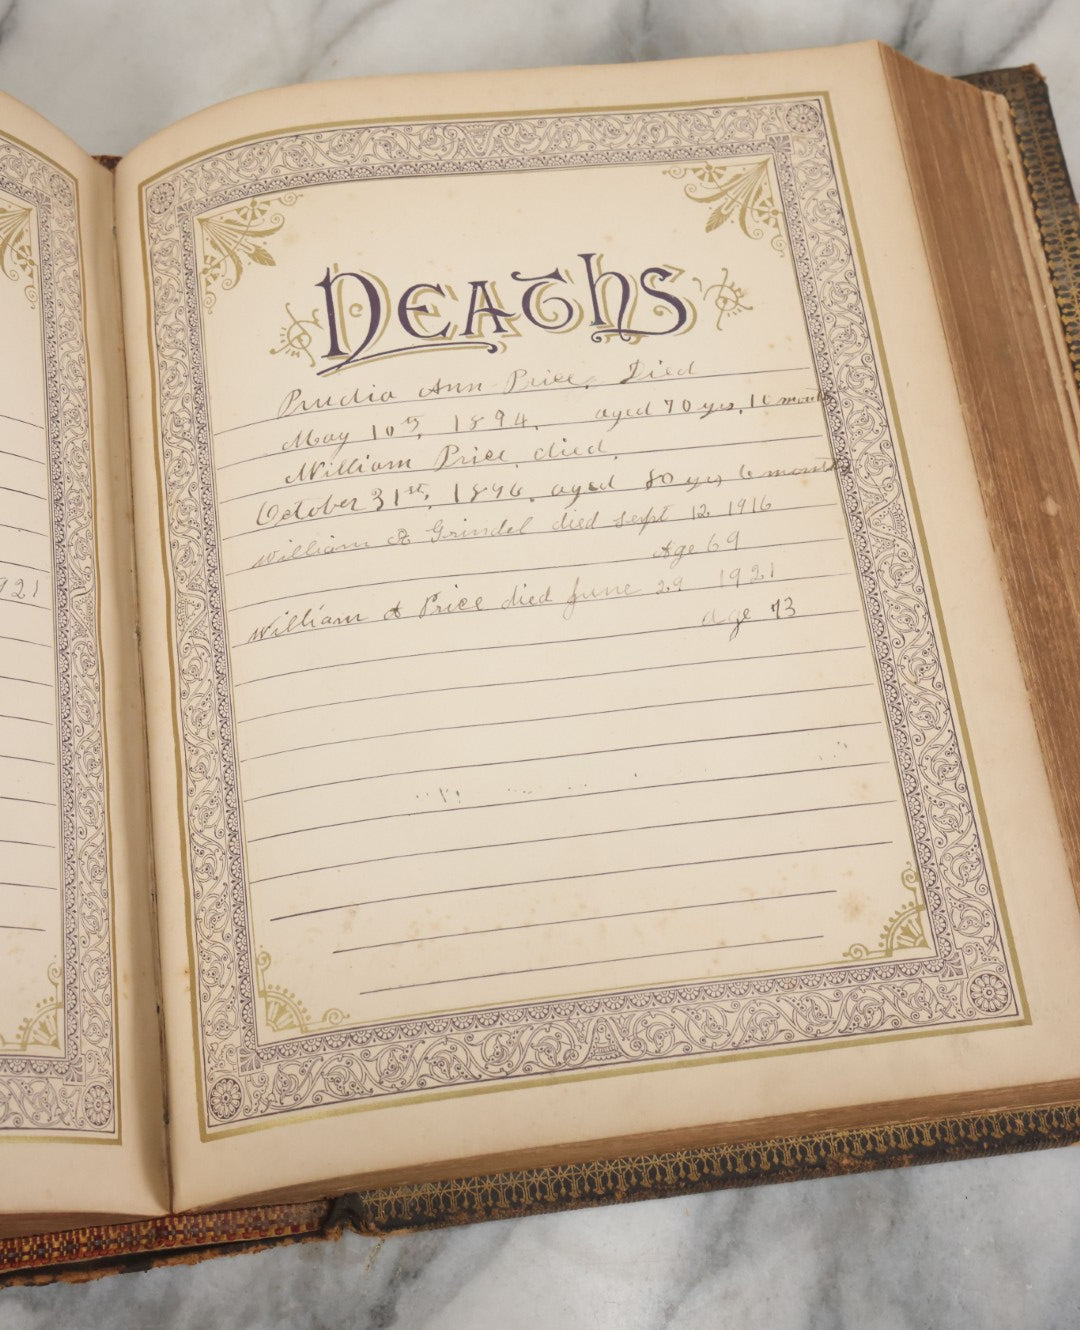 921
DEATHS
Prudia Ann Price. Died
May 10th, 1894. aged 70 yrs. 10 months
William Price died.
October 31st, 1896. aged 80 yrs 6 months
William A Grindel died Sept 12 1916
Age 69
William A Price died June 29 1921
age 73